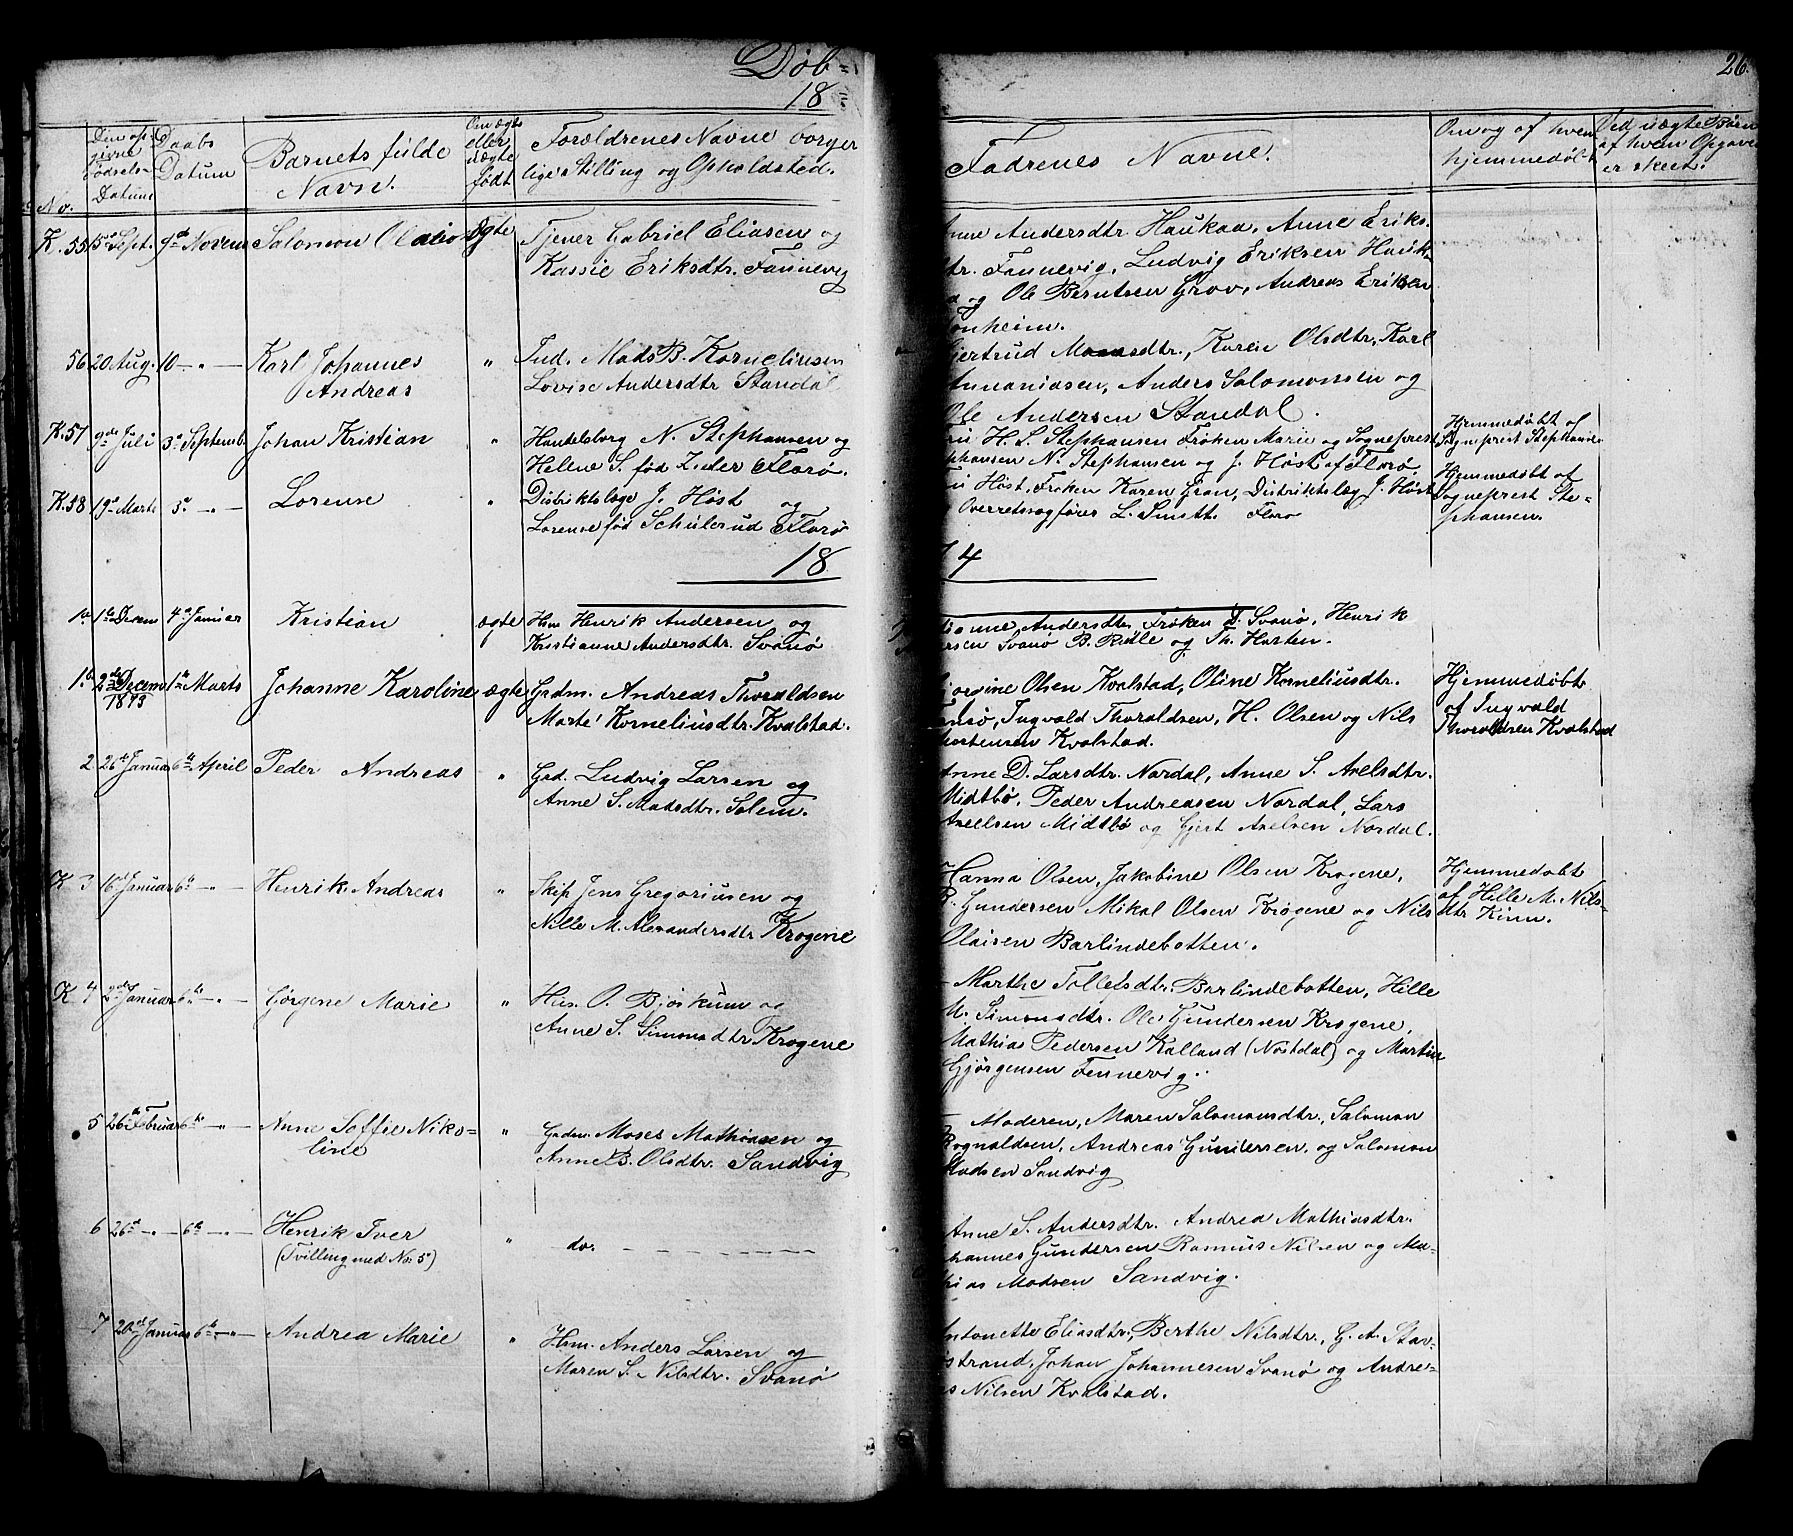 Døb=
18
26.
No.
Den op
givne
Fødsels-
Datum
Daabs
Datum
Barnets fulde
Navne.
Om ægte
eller
uægte
født
Forældrenes Navne borger
lige Stilling og Opholdsted.
Fadrenes Navne.
Om og af hvem
hjemmedøbt
Ved uægte Børn
af hvem Opgaven
er skeet.
K. 55 15 Sept. 9de Novem Salomon Olai Ægte Tjener Gabriel Eliasen og
Kassie Eriksdtr. Fannevig
Anne Andersdtr. Haukaa, Anne Eriks.
dtr. Fannevig, Ludvig Eriksen Hauk-
og Ole Berntsen Grov, Andreas Eriksen
56 20 Aug. 10 -"- Karl Johannes
Andreas
" Ind. Mads B. Korneliusen
Lovise Andersdtr Standal
Gjertrud Monsdtr., Karen Olsdtr, Karl
Annaniasen, Anders Salomonsen og
Ole Andersen Standal.
K. 57 9de Juli 3die Septemb. Johan Kristian " Handelsborg N. Stephansen og
Helene S. født Zeder Florø.
H. S. Stephansen Frøken Marie og Sogneprest
Stephansen N. Stephansen og J. Høst af Florø
Hjemmedøbt af
Sogneprest Stephansen
K. 58 19de Marts 3die -"- Lorense " Distriktslæge J. Høst og
Lorense fød Schulerud Florø
Høst, Frøken Karen Gran, Distriktslæg J. Høst
Overretssagfører L. Smitt. Florø
Hjemmedøbt af
Sogneprest Ste-
phansen.
18 74
1a 1ste Decem 4de Januar Kristian ægte Hsm Henrik Andersen og
Kristianne Andersdtr. Svanø
Andersdtr Frøken D. Svanø, Henrik
Svanø B. Rille og Th. Horten.
1b 2den Decem
1873 1ste Marts Johanne Karoline ægte Grdm. Andreas Thoraldsen
Marte Korneliusdtr. Kvalstad.
Olsen Kvalstad, Oline Korneliusdtr.
Ingvald Thoraldsen, H. Olsen og Nils
Mortensen Kvalstad.
Hjemmedøbt
af Ingvald
Thoraldsen Kvalstad
2. 26de Januar 6te April Peder Andreas " Grd. Ludvig Larsen og
Anne S. Madsdtr. Solem.
Anne D. Larsdtr. Nordal, Anne S. Axelsdtr.
Midtbø, Peder Andreasen Nordal, Lars
Axelsen Midtbø og Gjert Axelsen Nordal.
K 3 16de Januar 6te -"- Henrik Andreas " Skip. Jens Gregoriusen og
Nille M. Alexandersdtr Krogene
Hanna Olsen, Jakobine Olsen Krogene,
R. Gundersen Mikal Olsen Krogene og Nils
Olaisen Barlindebotten.
Hjemmedøbt
af Hille M. Nils-
dtr Kinn.
K 4 2den Januar 6te -"- Gørgene Marie " Hus. O. Bjørkum og
Anne S. Simonsdtr Krogene
Marthe Tollefsdtr. Barlindebotten, Hille
M. Simonsdtr. Ole Gundersen Krogene,
Mathias Pedersen Kalland (Nostdal) og Martin
Gjørgensen Fennevig.
5 26de Februar 6te -"- Anne Soffie Niko-
line
" Grdm. Moses Mathiasen og
Anne B. Olsdtr. Sandvig
Moderen, Maren Salomonsdtr., Salomon
Rognaldsen, Andreas Gundersen, og Salomon
Madsen Sandvig
6 26de -"- 6te -"- Henrik Iver
(Tvilling med No. 5)
" do.
Anne S. Andersdtr. Andrea Mathiasdtr.
Johannes Gundersen Rasmus Nilsen og Ma-
thias Madsen Sandvig.
7 20de Januar 6te -"- Andrea Marie " Hsm. Anders Larsen og
Maren S. Nilsdtr. Svanø
Antonette Eliasdtr, Berthe Nilsdtr., G. A. Stav-
strand, Johan Johannesen Svanø og Andre-
as Nilsen Kvalstad.